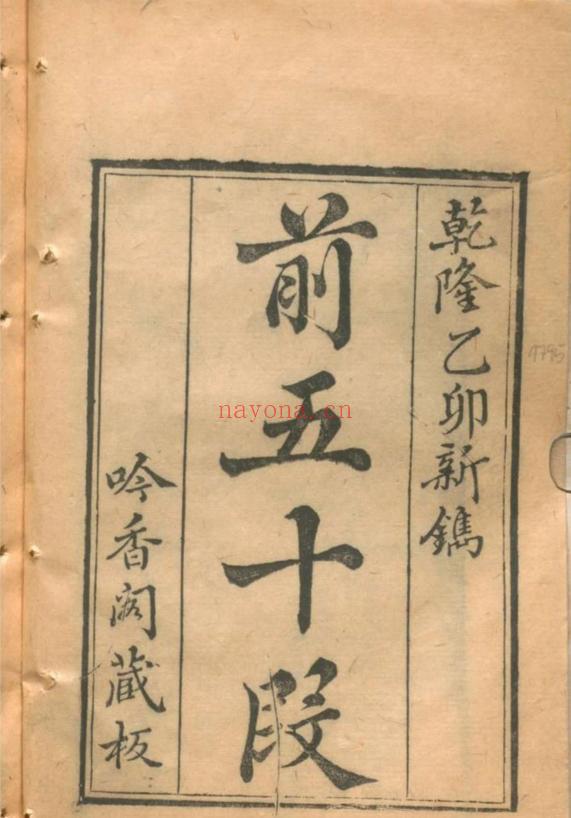 乾隆乙卯新鐫
前五十段
吟香阁藏板
nayona.cn
1795